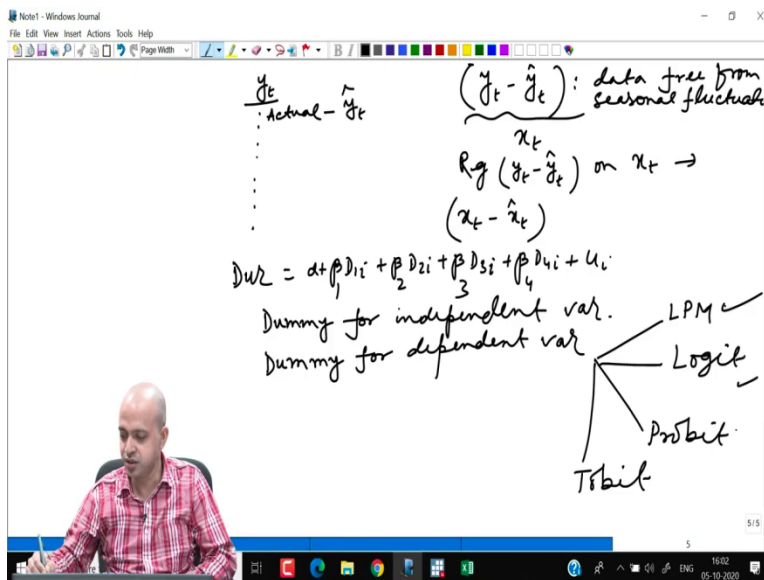 Note1 - Windows Journal
File Edit View Insert Actions Tools Help
Page Width
B I
y_t
Actual - ŷ_t
(y_t - ŷ_t) : data free from
seasonal fluctuat
x_t
Reg (y_t - ŷ_t) on x_t →
(x_t - x̂_t)
Dur = α + β_1 D_1i + β_2 D_2i + β_3 D_3i + β_4 D_4i + u_i
Dummy for independent var.
Dummy for dependent var
LPM ✓
Logit ✓
Probit
Tobit
5/5
5
ENG
16:02
05-10-2020